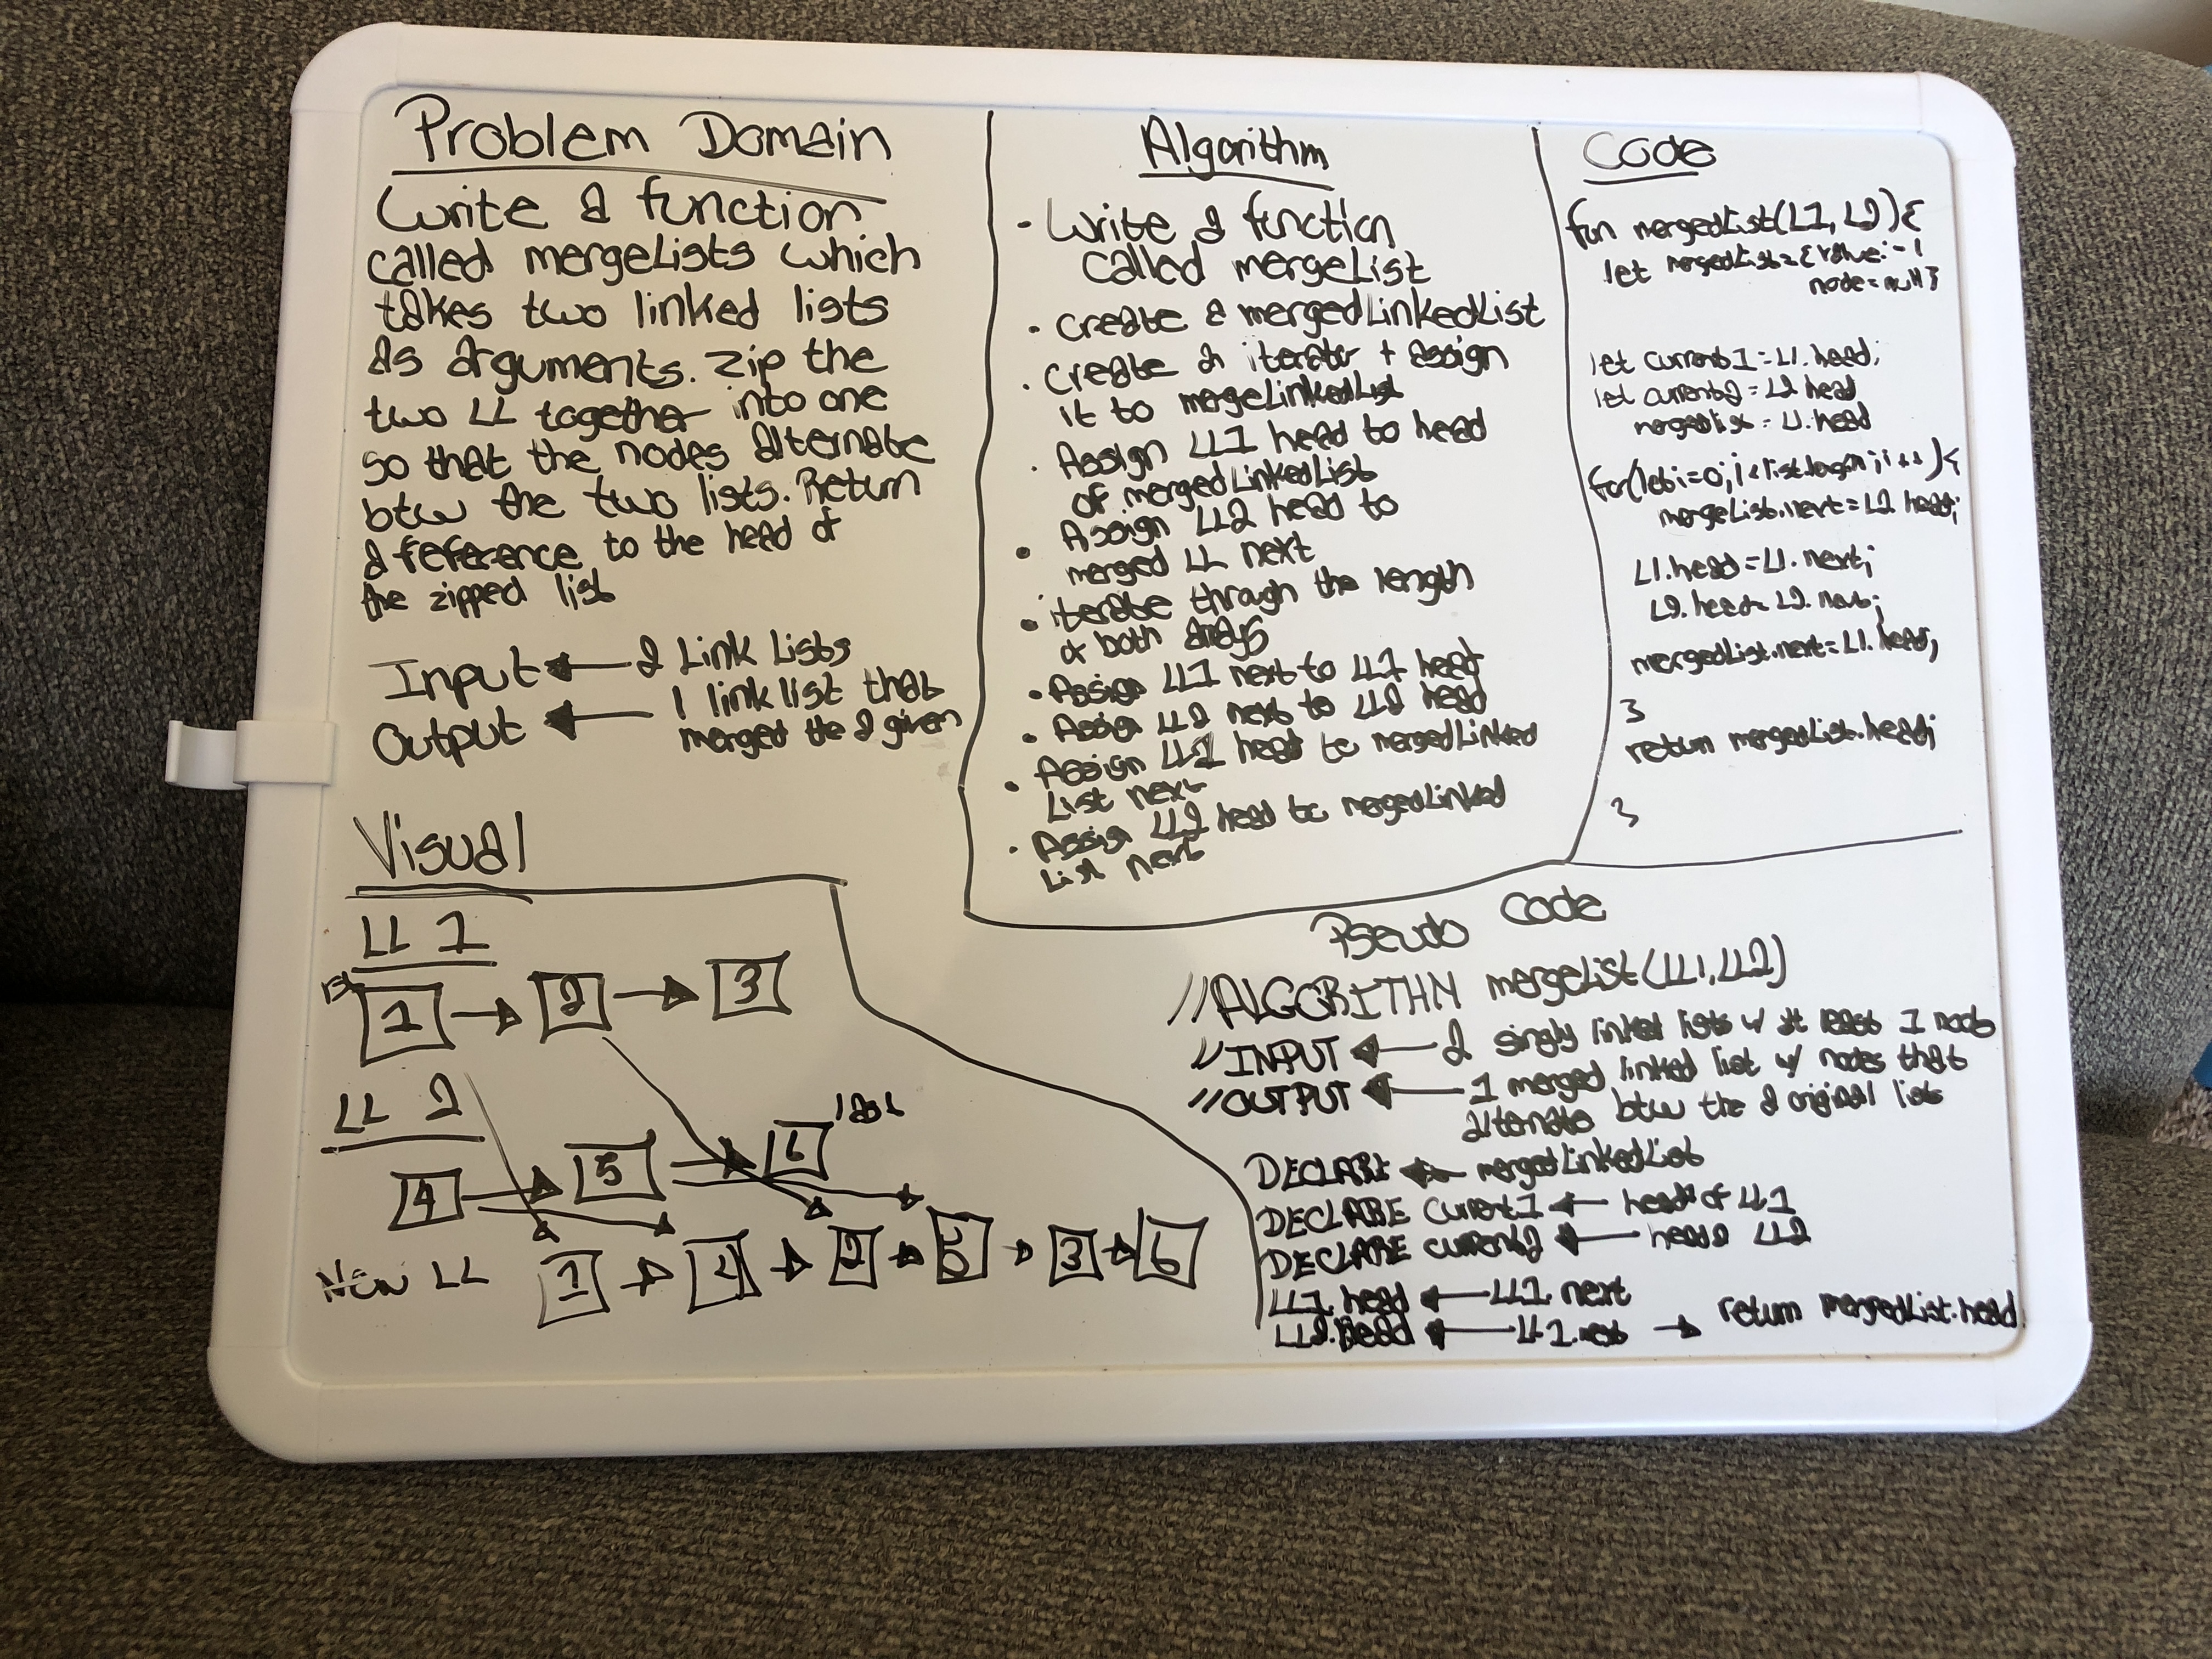 Problem Domain
Write a function
called mergeLists which
takes two linked lists
as arguments. Zip the
two LL together into one
so that the nodes alternate
btw the two lists. Return
a reference to the head of
the zipped list
Input ← 2 Link Lists
Output ← 1 link list that
merged the 2 given
Visual
LL 1
1 → 2 → 3
LL 2
last
4 → 5 → 6
New LL 1 → 4 → 2 → 5 → 3 → 6
Algorithm
• Write a function
called mergeList
• create a mergedLinkedList
• create a iterator + assign
it to mergeLinkedList
• Assign LL1 head to head
of mergedLinkedList
• Assign LL2 head to
merged LL next
• iterate through the length
of both arrays
• Assign LL1 next to LL1 head
• Assign LL2 next to LL2 head
• Assign LL1 head to mergedLinked
List next
• Assign LL2 head to mergedLinked
List next
Code
fun mergedList(L1, L2){
let mergedList={value:-1
node=null}
let current1=L1.head;
let current2=L2.head
mergedlist=L1.head
for(let i=0; i<list.length; i++){
mergeList.next=L2 head;
L1.head=L1.next;
L2.head=L2.next;
mergedList.next=L1.head;
}
return mergedList.head;
}
Pseudo Code
//ALGORITHM mergeList(LL1,LL2)
//INPUT ← 2 singly linked lists w/ at least 1 node
//OUTPUT ← 1 merged linked list w/ nodes that
alternate btw the 2 original lists
DECLARE ← mergedLinkedList
DECLARE current1 ← head of LL1
DECLARE current2 ← head LL2
LL1.head ← LL1.next
LL2.head ← LL1.next → return mergedList.head